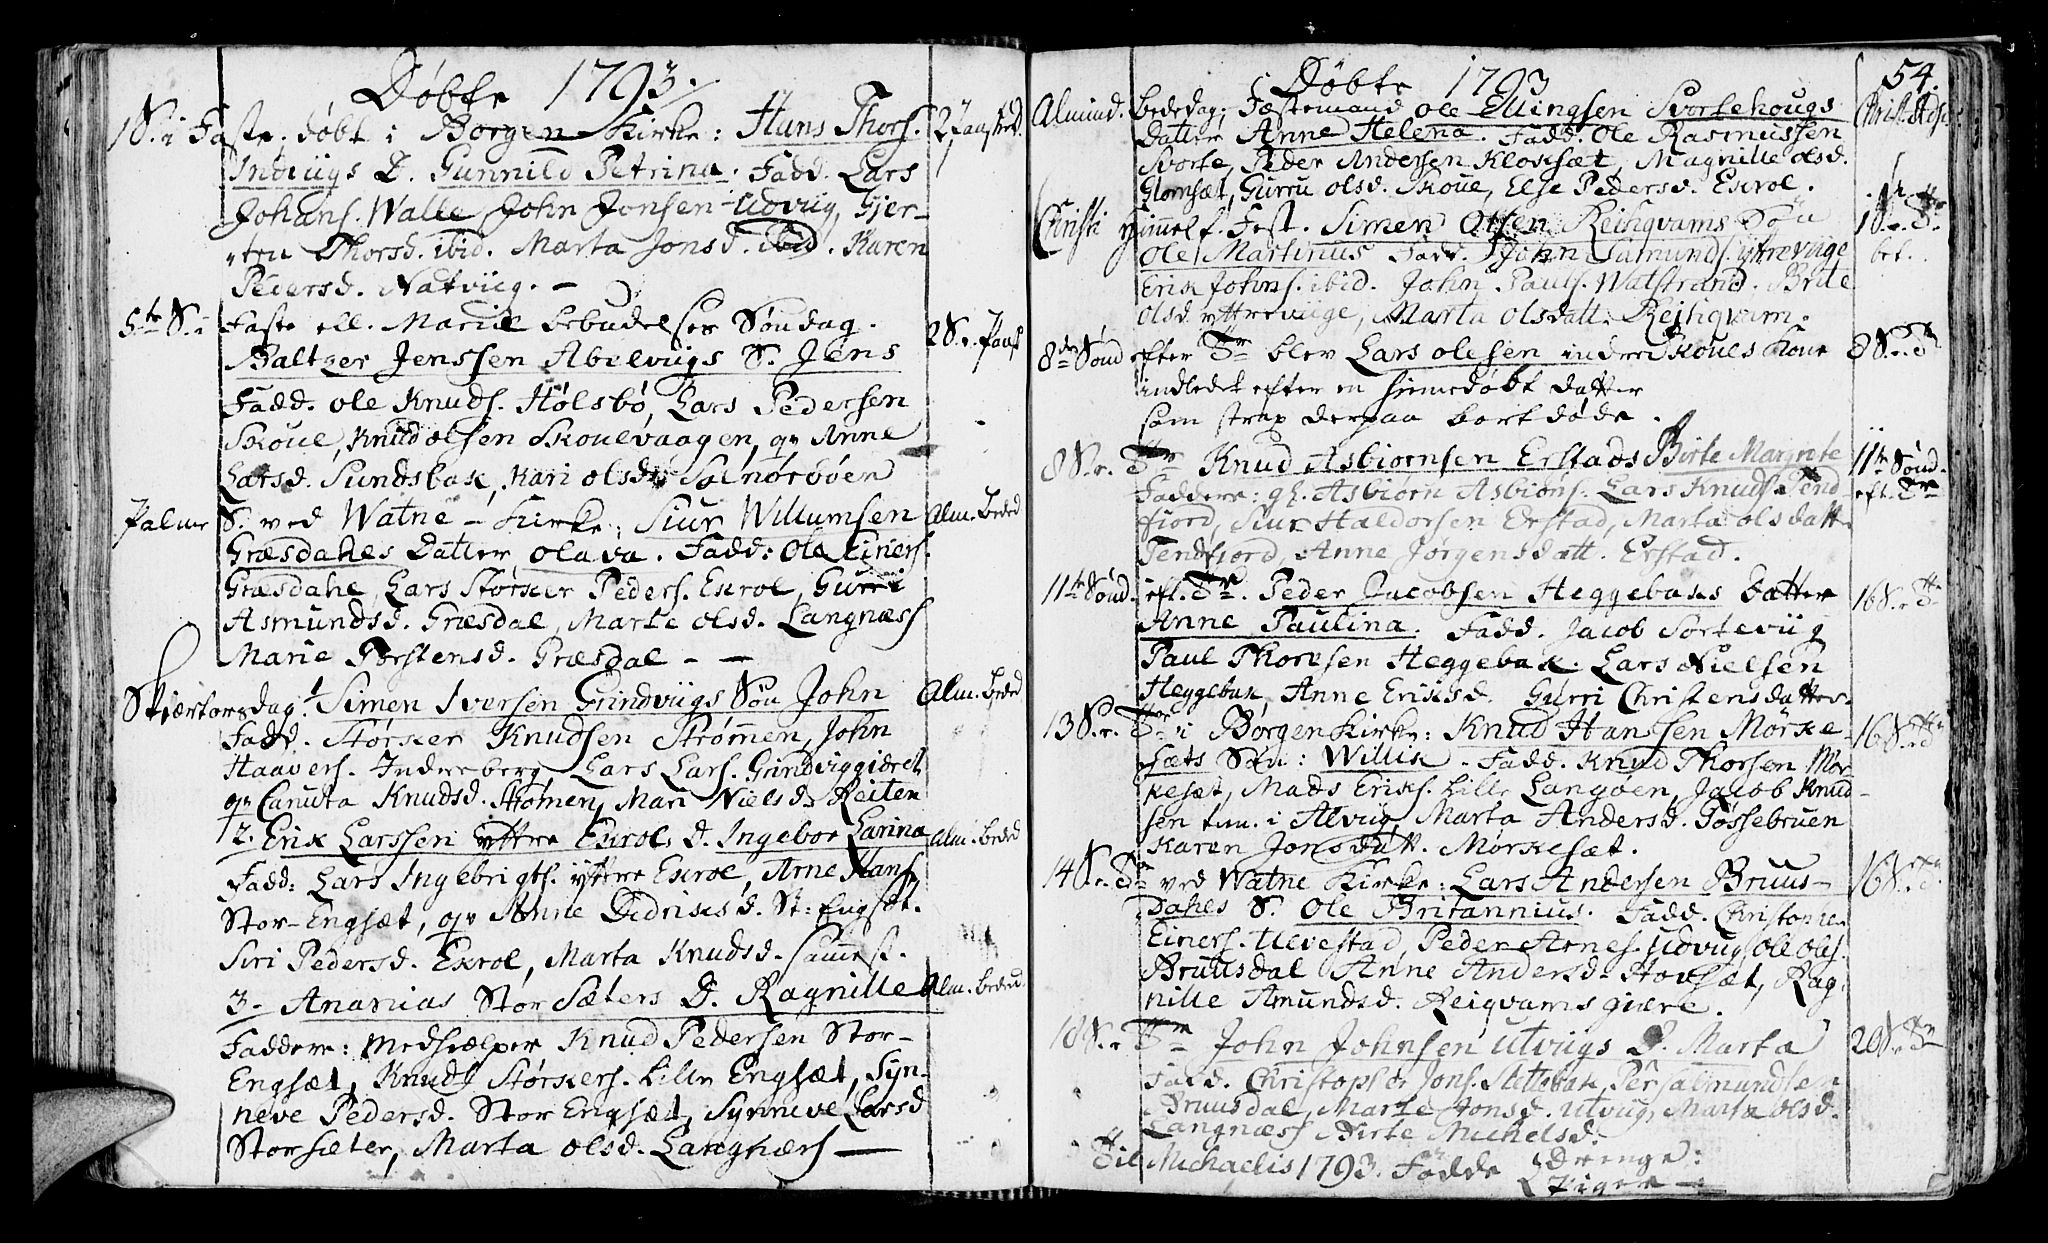 Døbte 1793.
1 S. i Faste, døbt i Borgen Kirke: Hans Thors. 2 Paasked.
Indviigs D. Gunnild Petrina. Fadd. Lars
Johans. Walle, John Jonsen Udviig, Gjer-
tru Thorsd. ibid. Marta Jonsd. ibid. Karen
Pedersd. Natviig. —
5te S. i Faste ell. Mariæ bebudelses Søndag. 2 S. e. Paask
Baltzer Jenssen Abelviigs S. Jens
Fadd. Ole Knuds. Hølsbø, Lars Pedersen
Skoue, Knud olsen Skouevaagen, qv Anne
Larsd. Sundsbak, Kari olsd. Solnørbøen
Palme S. ved Watne Kirke: Siur Willumsen Alm. Beded
Græsdahes Datter Olava. Fadd: Ole Einers.
Græsdahe, Lars Størker Peders. Exrol, Gurri
Asmundsd. Græsdal, Marte olsd. Langnæss
Marie Torstensd. Græsdal — —
Skiertorsdag 1 Simen Iversen Grindviigs Søn John Alm. Beded
Fadd. Størker Knudsen Strømen, John
Haavers. Indreberg, Lars Lars. Grindviggiæret
qv Canuta Knudsd. Strømen, Mari Nielsd. Reiten
2. Erik Larssen yttre Exrols D. Ingebor Larina Alm. Beded
Fadd: Lars Ingebrigts. yttre Exrol, Arne Hans.
Stor-Engsæt, qv Anne Didriksd. St: Engsæt.
Siri Pedersd. Exrol, Marta Knudsd. samest.
3 — Ananias Stor Sæters D. Ragnille Alm. Beded.
Faddere: Medhielper Knud Pedersen Stor-
Engsæt, Knud Størkers. Lille Engsæt, Syn-
neve Pedersd. Stor Engsæt, Synneve Larsd
Storsæter, Marta olsd. Langnæss —
Døbte 1793 54.
Almind. Bededag, Fæstemand Ole Ellingsen Svortehougs
Datter Anne Helena. Fadd. Ole Rasmussen
Svorte, Peder Andersen Kloksæt, Magnille olsd.
Glomsæt, Gurru olsd. Skoue, Else Pedersd. Exrol.
Christi Himelf. Fest. Simen Olsen Reihqvams Søn 1 S. e. Tr.
Ole Martinus Fadd. John Salmunds. yttreviige
Erik Johns. ibid. John Pauls. Watstrand. Brite
olsd. yttreviige, Marta Olsdatt. Rejhqvam.
8de Sønd efter Tr blev Lars olesen indre Skoues Kone 8 S. e. Tr
indledet efter en hiemedøbt datter
som strax derpaa bortdøde.
8 S. e. Tr Knud Asbiørnsen Erstads Birte Margrete 11te Sønd.
Faddere: gl. Asbiørn Asbiøns. Lars Knuds. Tend- eft. Tr
fiord, Siur Haldorsen Erstad, Marta olsdatt.
Tendfiord, Anne Jørgensdatt. Erstad.
11te Sønd. eft. Tr. Peder Jacobsen Heggebaks Datter 16 S. e. Tr
Anne Paulina. Fadd. Jacob Sorteviig
Paul Thoresen Heggebak. Lars Nielsen
Heggebak, Anne Eriksd. Gurri Christensdatter
13 S. e. Tr i Borgen Kirke: Knud Hanssen Mørke- 16 S. e. Tr
Sæts Søn: Willik. Fadd. Knud Thorsen Mør-
kesæt, Mads Eriks. Lille Langøen, Jacob Knud-
sen tien. i Alviig Marta Andersd. Gossebruen
Karen Jonsdatt. Mørkesæt.
14 S. e. Tr ved Watne Kirke: Lars Andersen Bruus- 16 S. e. Tr.
Dahes S. Ole Britannius. Fadd. Christophe
Einers. Ulvestad, Peder Arnes. Udviig, Ole ols.
Bruusdal Anne Andersd. Hovsæt, Rag-
nille Amundsd. Reiqvamsgiære.
18 S. e. Tr John Johnsen Utviigs D. Marta 20 S. e. Tr
Fadd. Christopher Jons. Slettebak, Per Salmundsen
Bruusdal, Marte Jonsd. Utviig, Marta olsd.
Langnæss Birte Michelsd.
Til Michaelis 1793. Fødde Drenge:
Piger —